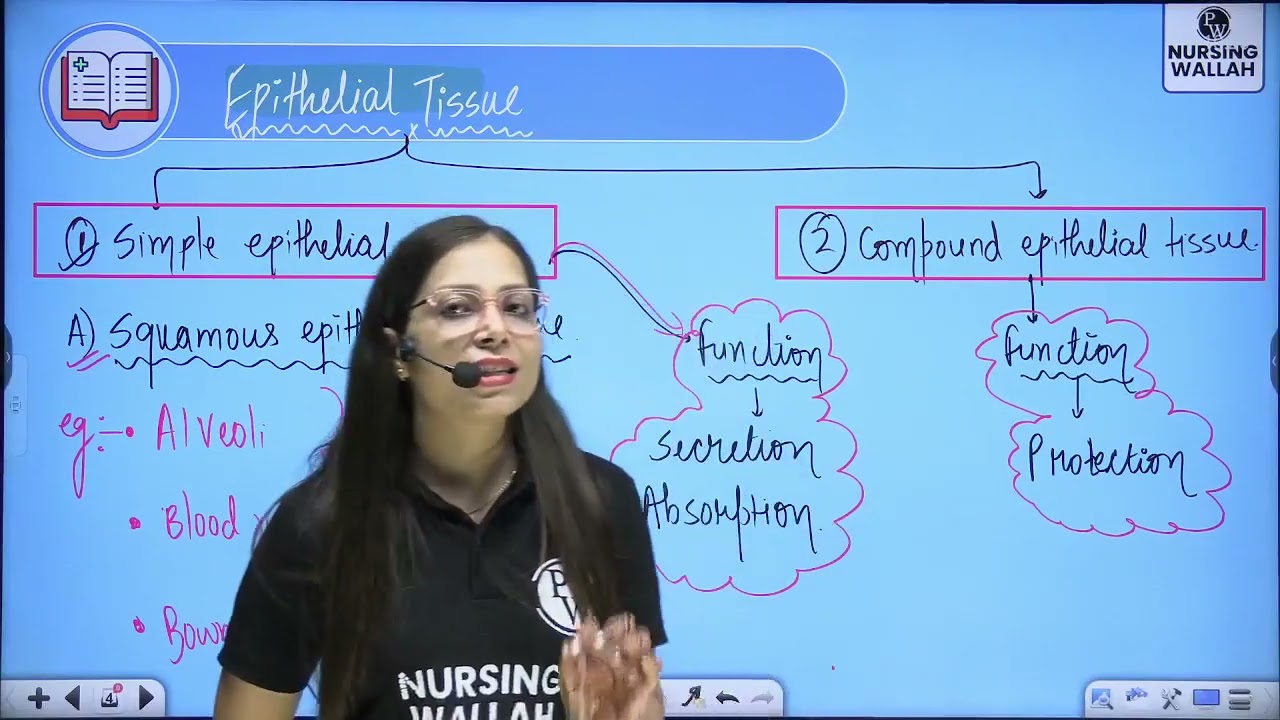 PW
NURSING
WALLAH
Epithelial Tissue
① Simple epithelial
② Compound epithelial tissue.
A) Squamous
eg:- • Alveoli
• Blood
function
Secretion
Absorption.
function
Protection
PW
NURSING
WALLAH
4